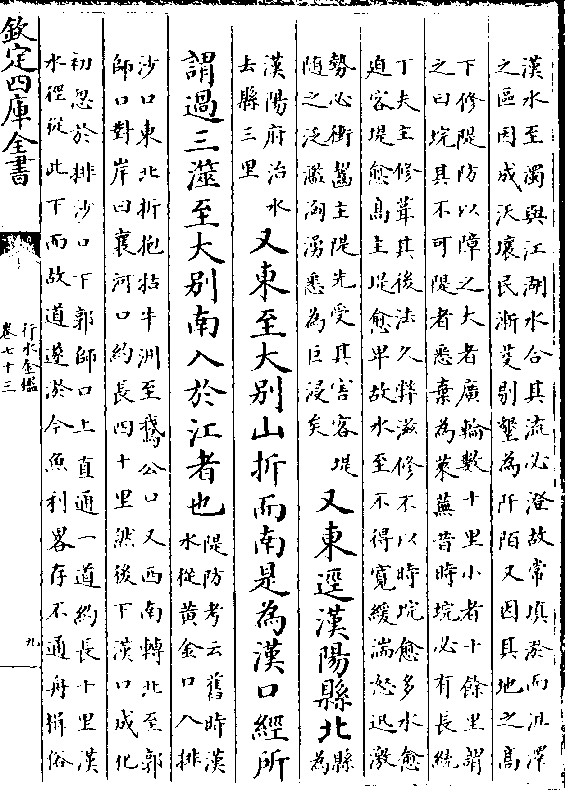 漢水至濁與江湖水合其流必澄故常填淤而沮澤
之區因成沃壤民漸芟剔墾為阡陌又因其地之高
下修隄防以障之大者廣輪數十里小者十餘里謂
之曰垸其不可隄者悉棄為萊蕪昔時垸必有長統
丁夫主修葺其後法久弊滋修不以時垸愈多水愈
迫客堤愈高主堤愈卑故水至不得寬緩湍怒迅激
勢必衝齧主隄先受其害客堤
隨之泛濫洶湧悉為巨浸矣
又東逕漢陽縣北
縣
為
漢陽府治水
去縣三里
又東至大别山折而南是為漢口經所
謂過三澨至大别南入於江者也
隄防考云舊時漢
水從黃金口入排
沙口東北折抱牯牛洲至鵞公口又西南轉北至郭
師口對岸曰襄河口約長四十里然後下漢口成化
初忽於排沙口下郭師口上直通一道約長十里漢
水徑從此下而故道遂淤今魚利畧存不通舟楫俗
欽定四庫全書
行水金鑑
卷七十三
九